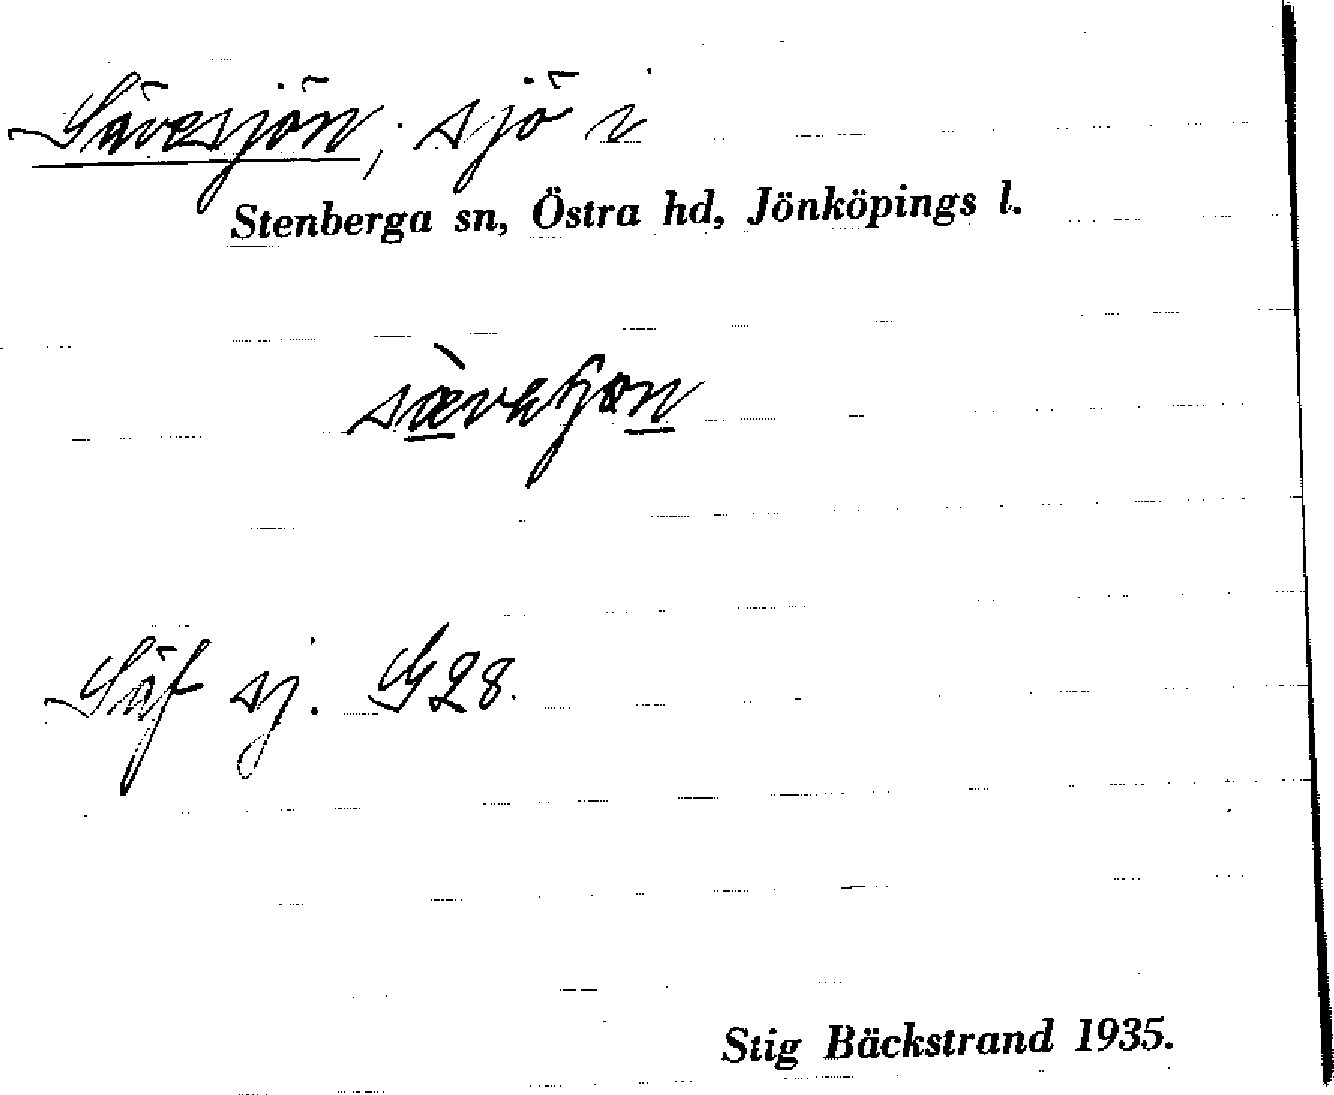 Sävesjön, sjö i
Stenberga sn, Östra hd, Jönköpings l.
Säf sj. G28.
Stig Bäckstrand 1935.